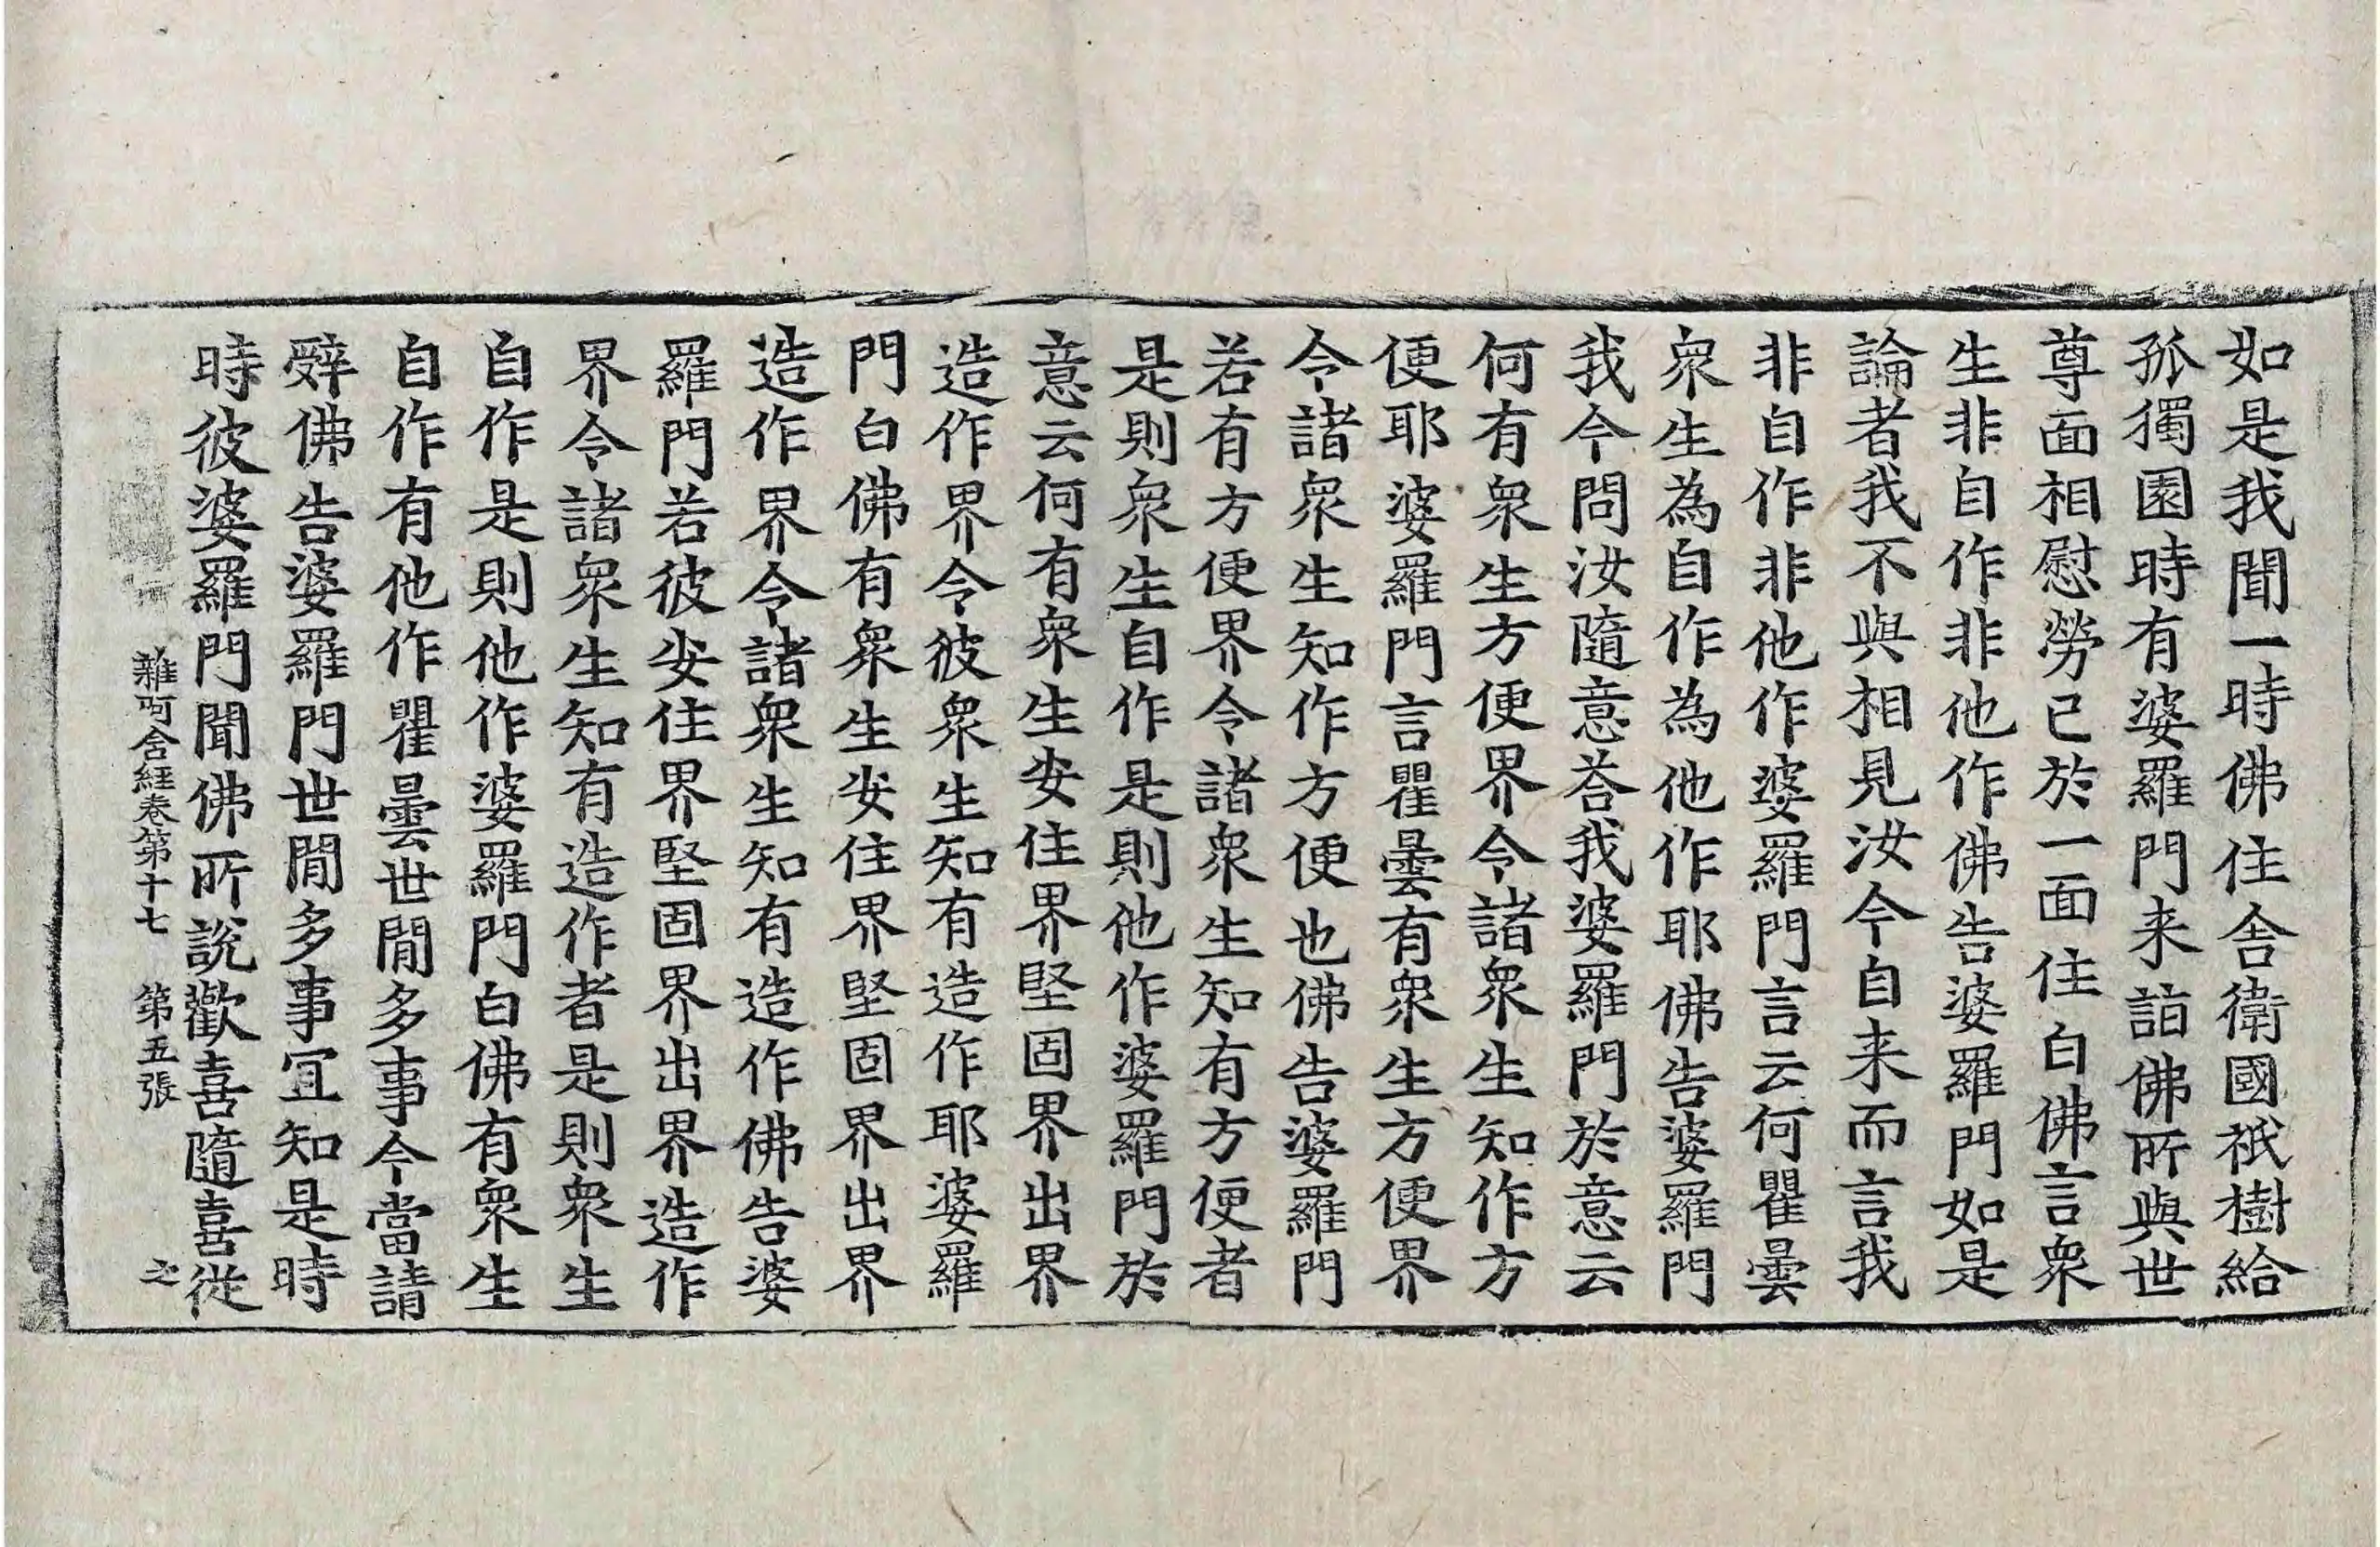 如是我聞一時佛住舍衛國祇樹給
孤獨園時有婆羅門来詣佛所與世
尊面相慰勞已於一面住白佛言衆
生非自作非他作佛告婆羅門如是
論者我不與相見汝今自来而言我
非自作非他作婆羅門言云何瞿曇
衆生為自作為他作耶佛告婆羅門
我今問汝隨意荅我婆羅門於意云
何有衆生方便界令諸衆生知作方
便耶婆羅門言瞿曇有衆生方便界
令諸衆生知作方便也佛告婆羅門
若有方便界令諸衆生知有方便者
是則衆生自作是則他作婆羅門於
意云何有衆生安住界堅固界出界
造作界令彼衆生知有造作耶婆羅
門白佛有衆生安住界堅固界出界
造作界令諸衆生知有造作佛告婆
羅門若彼安住界堅固界出界造作
界令諸衆生知有造作者是則衆生
自作是則他作婆羅門白佛有衆生
自作有他作瞿曇世閒多事今當請
辤佛告婆羅門世閒多事冝知是時
時彼婆羅門聞佛所說歡喜隨喜從
雜阿含經卷第十七 第五張 之